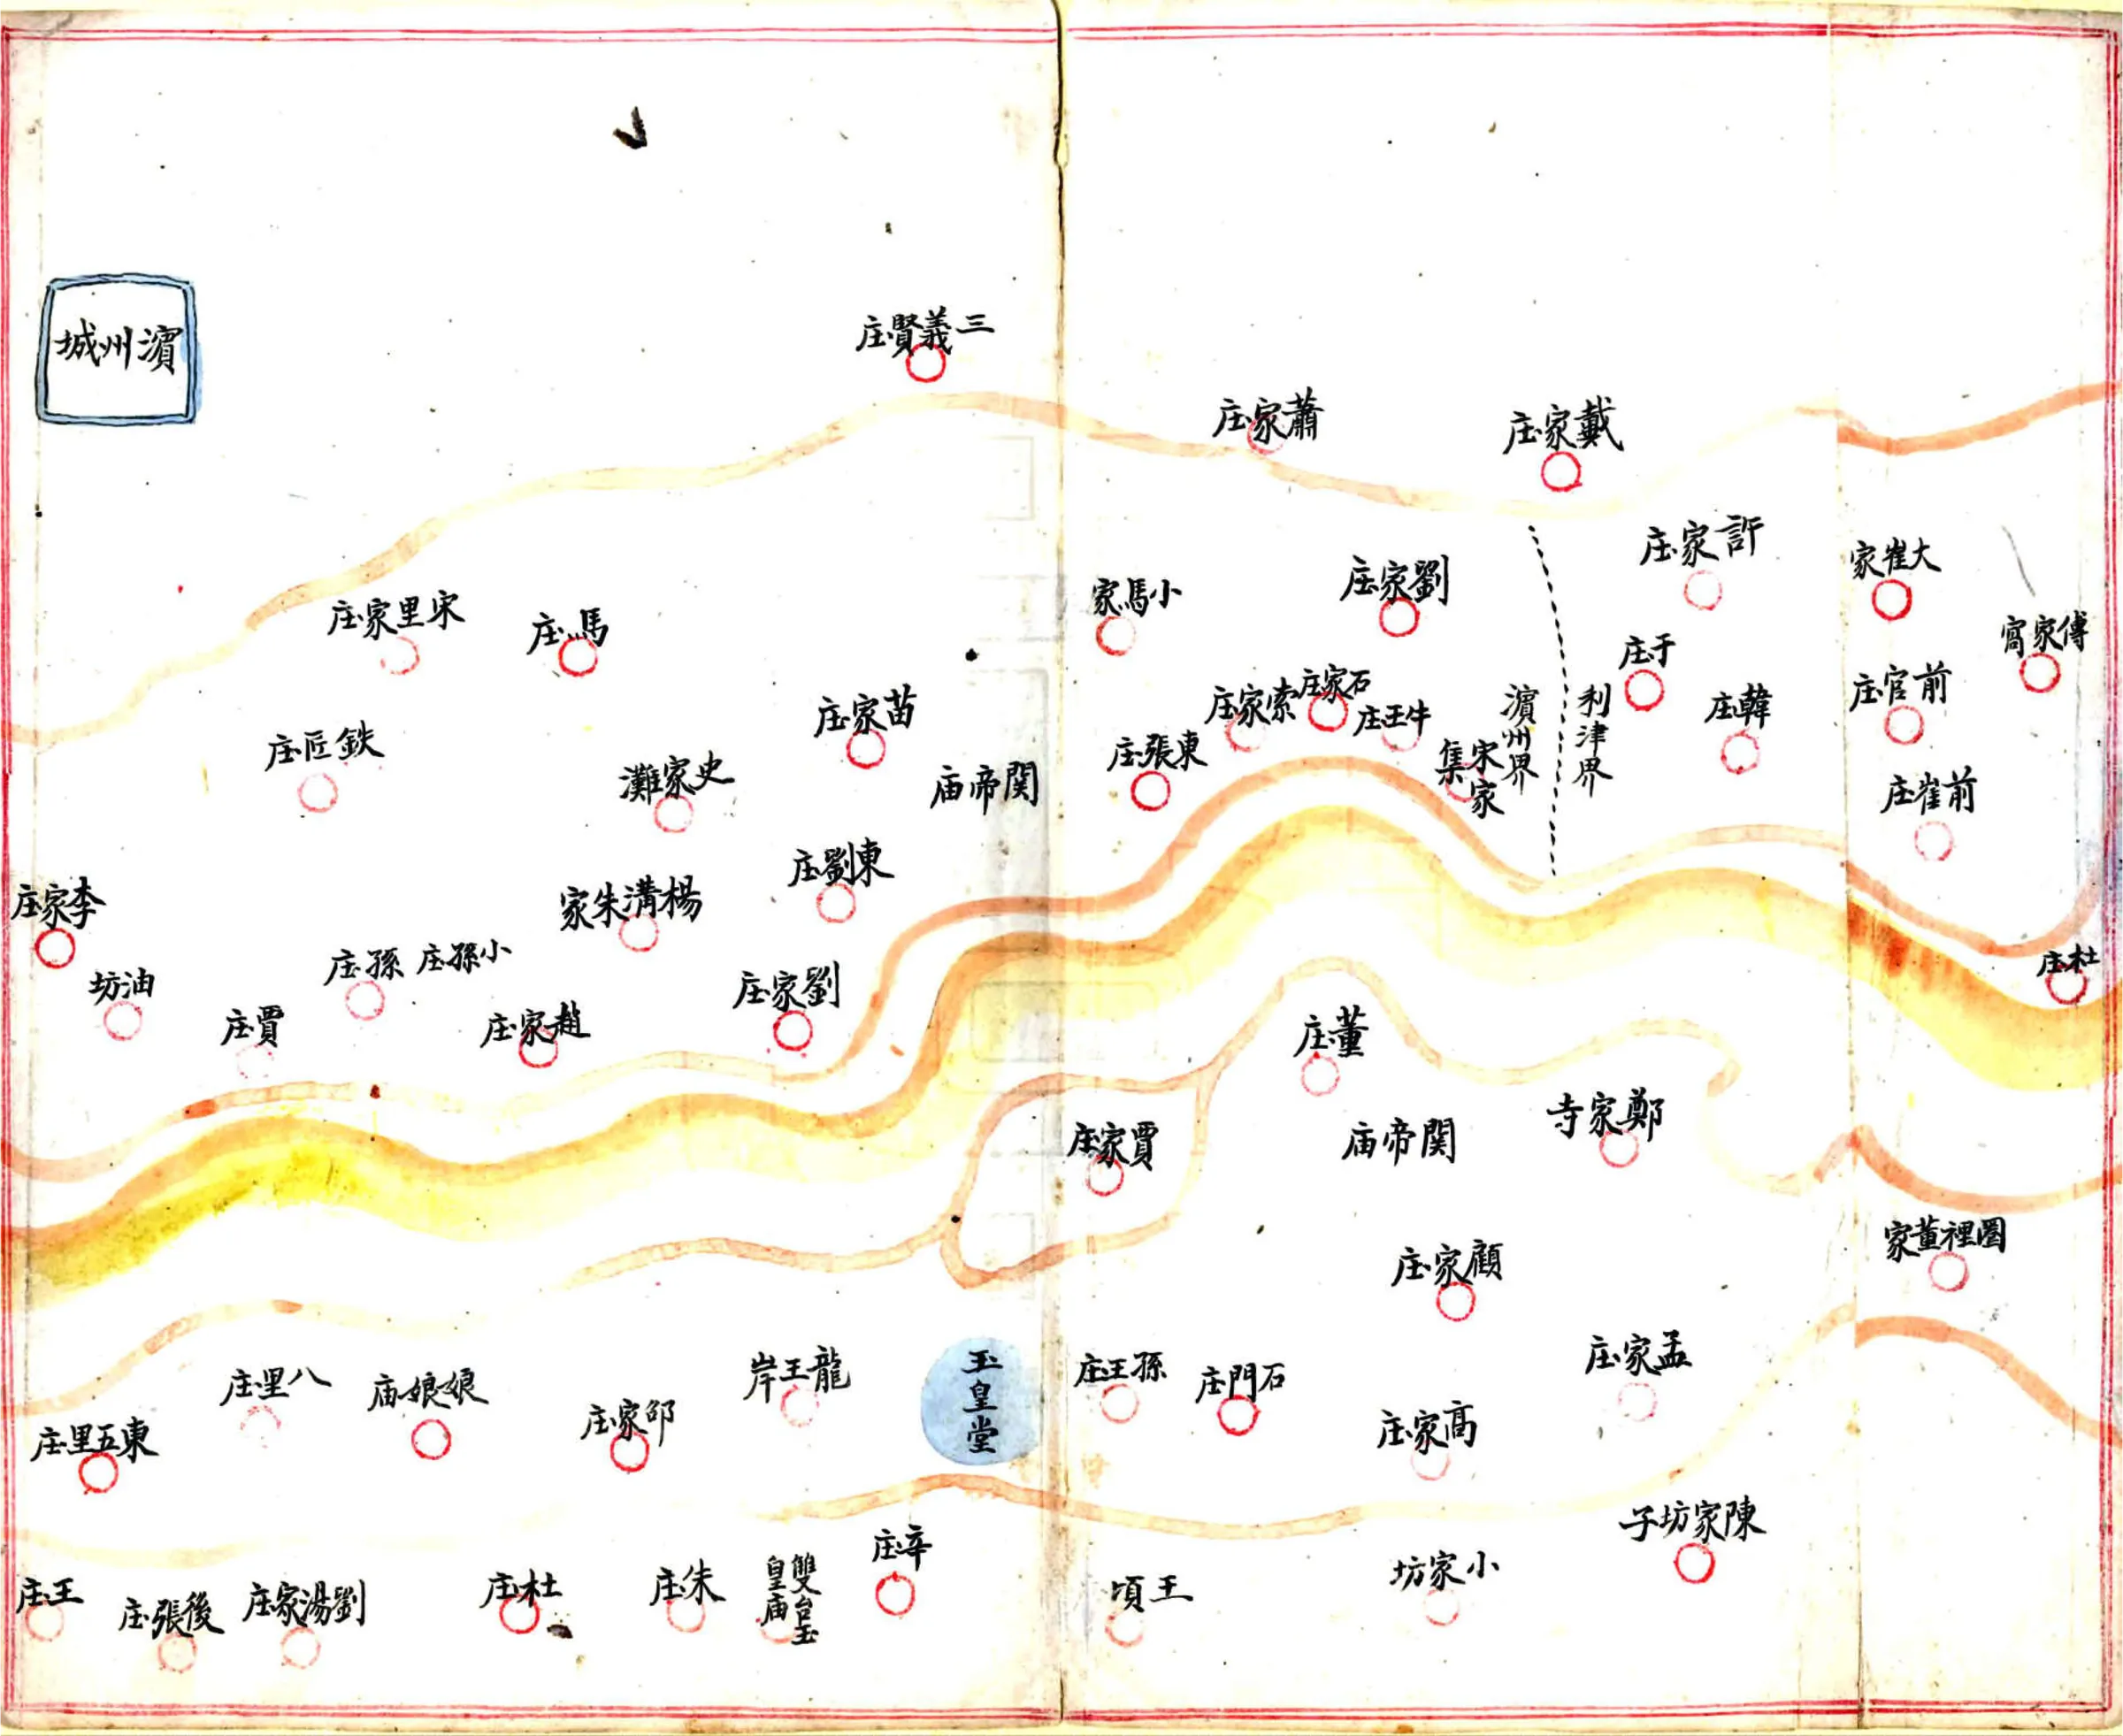 三義賢庄
濱州城
蕭家庄
戴家庄
許家庄
大崔家
劉家庄
小馬家
宋里家庄
馬庄
傅家窩
于庄
前官庄
韓庄
石家庄
索家庄
牛王庄
苗家庄
利津界
濱州界
宋家集
東張庄
鉄匠庄
史家灘
関帝庙
前崔庄
東劉庄
楊溝朱家
李家庄
小孫庄
孫庄
油坊
劉家庄
杜庄
賈庄
趙家庄
董庄
鄭家寺
関帝庙
賈家庄
圈裡董家
顧家庄
孟家庄
玉皇堂
孫王庄
石門庄
龍王岸
八里庄
娘娘庙
邵家庄
高家庄
東五里庄
陳家坊子
辛庄
小家坊
雙台玉皇庙
朱庄
杜庄
王頃
王庄
後張庄
劉湯家庄